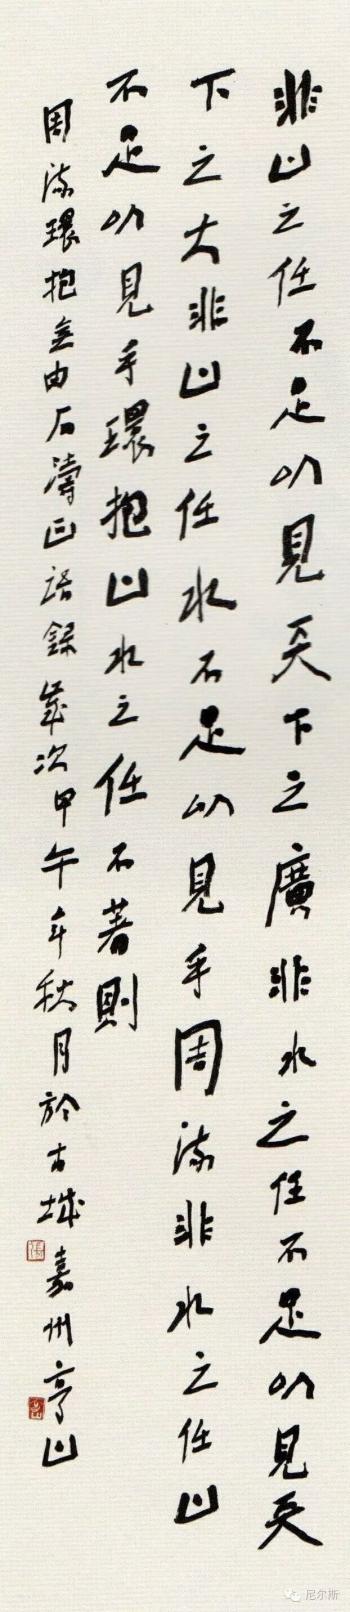 非山之任不足以見天下之廣非水之任不足以見天
下之大非山之任水不足以見乎周流非水之任山
不足以見乎環抱山水之任不著則
周流環抱無由石濤画語錄歲次甲午年秋月於古城嘉州亨山
尼尔斯